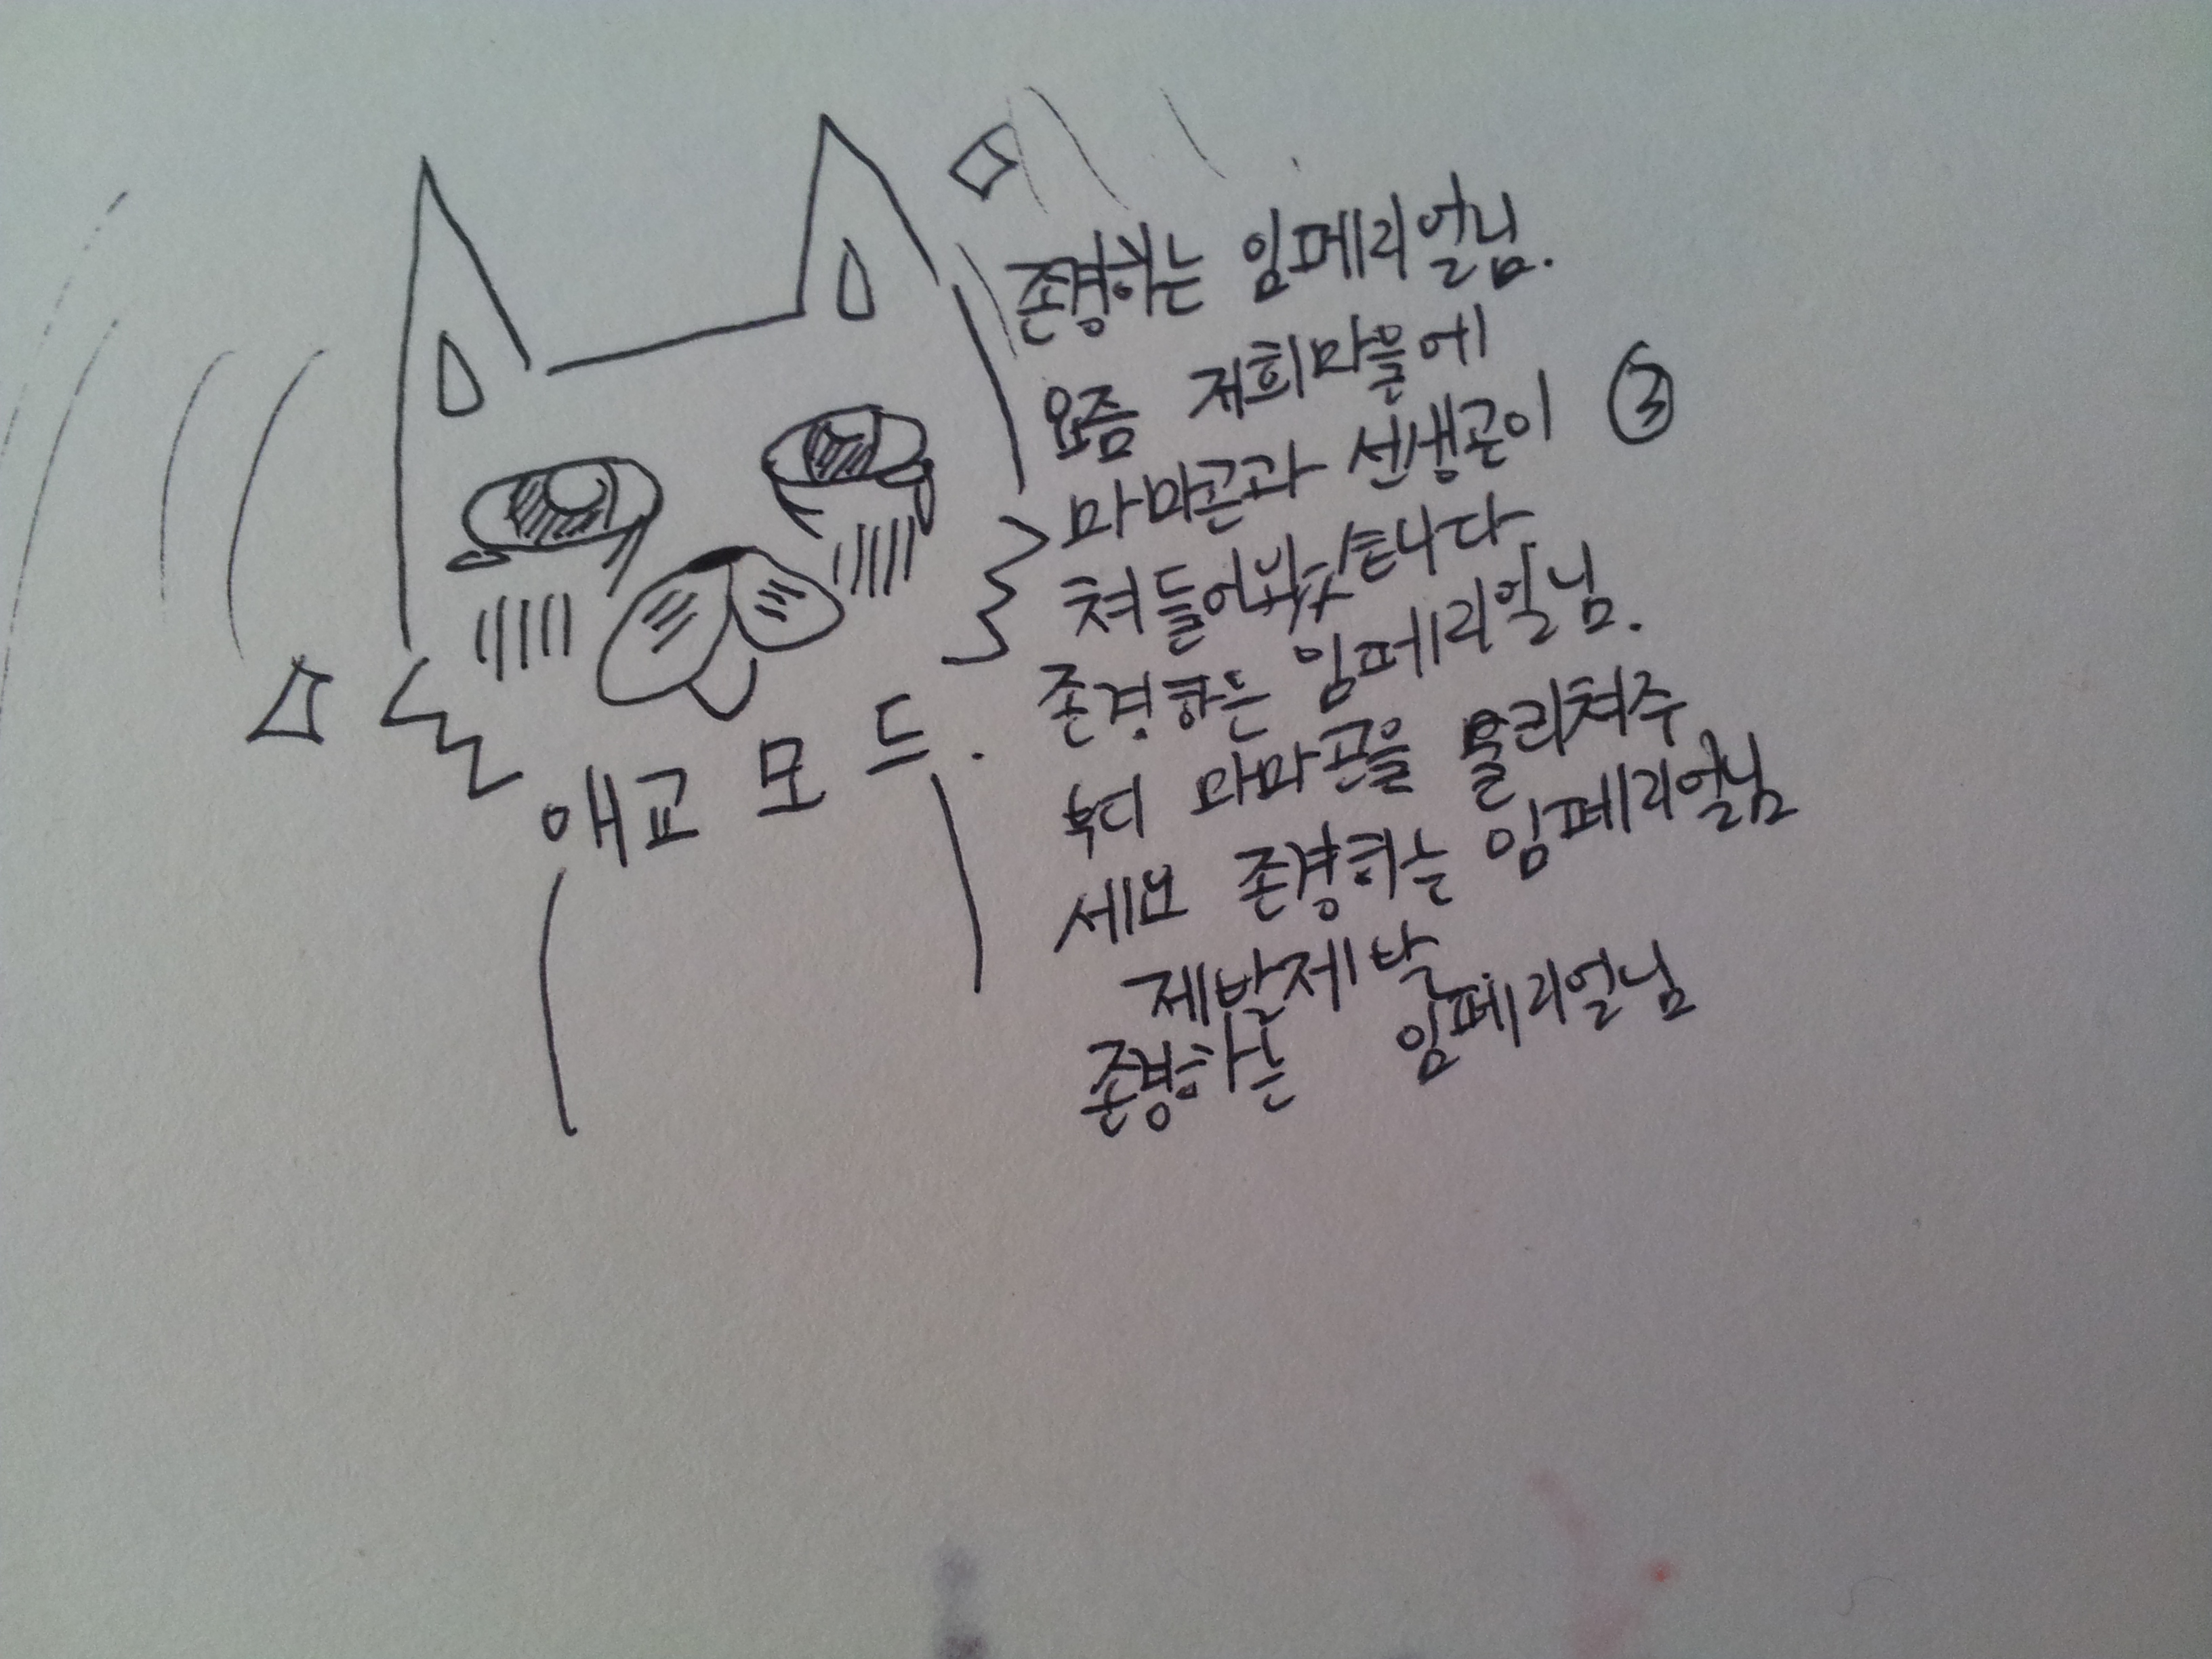 존경하는 임페리얼님.
요즘 저희마을에
마마곤과 선생곤이 ③
쳐들어봐ㅆ습니다.
존경하는 임페리얼님.
부디 마마곤을 물리쳐주
세요 존경하는 임페리얼님
제발제발
존경하는 임페리얼님
애교 모드.